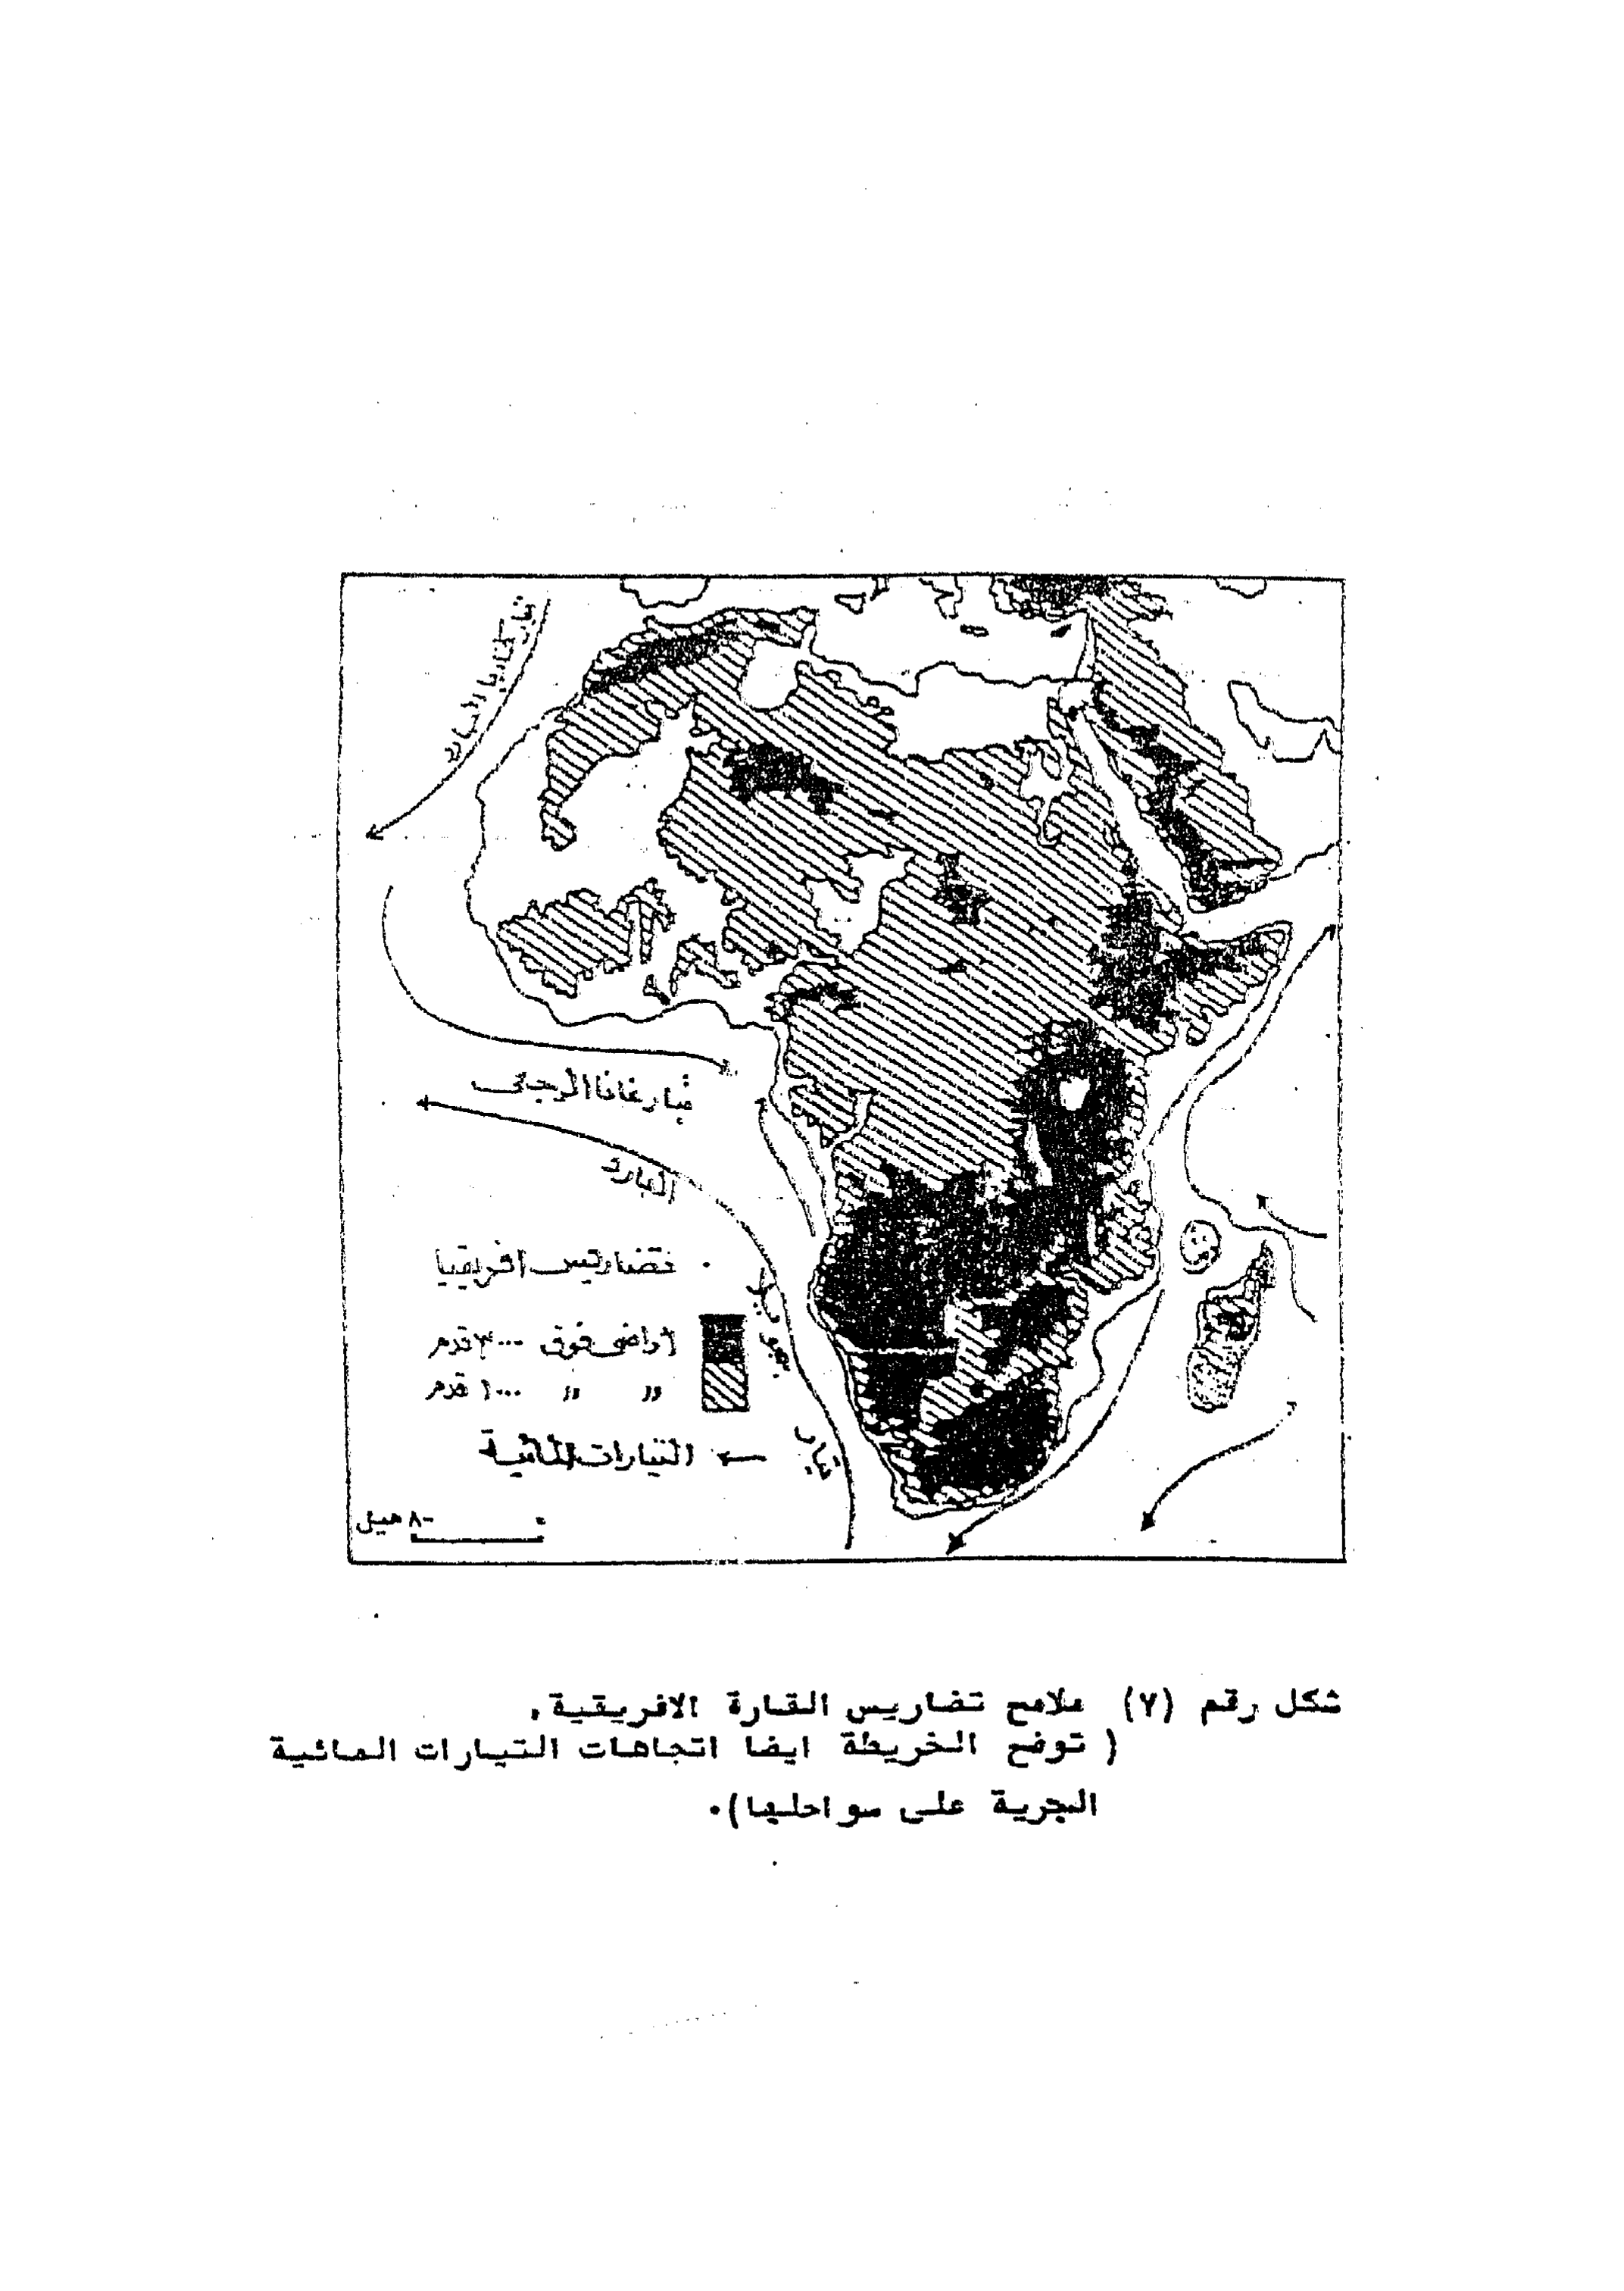 تيار كناريا البارد
تيار غانا الرجعى
البارد
تيار بنجويلا
تضاريس افريقيا
اراضى فوق ٣٠٠٠ قدم
〃 〃 ١٠٠٠ قدم
التيارات المائية
٨٠٠ ميل
شكل رقم (٧) ملامح تضاريس القارة الافريقية.
( توضح الخريطة ايضا اتجاهات التيارات المائية
البحرية على سواحلها).